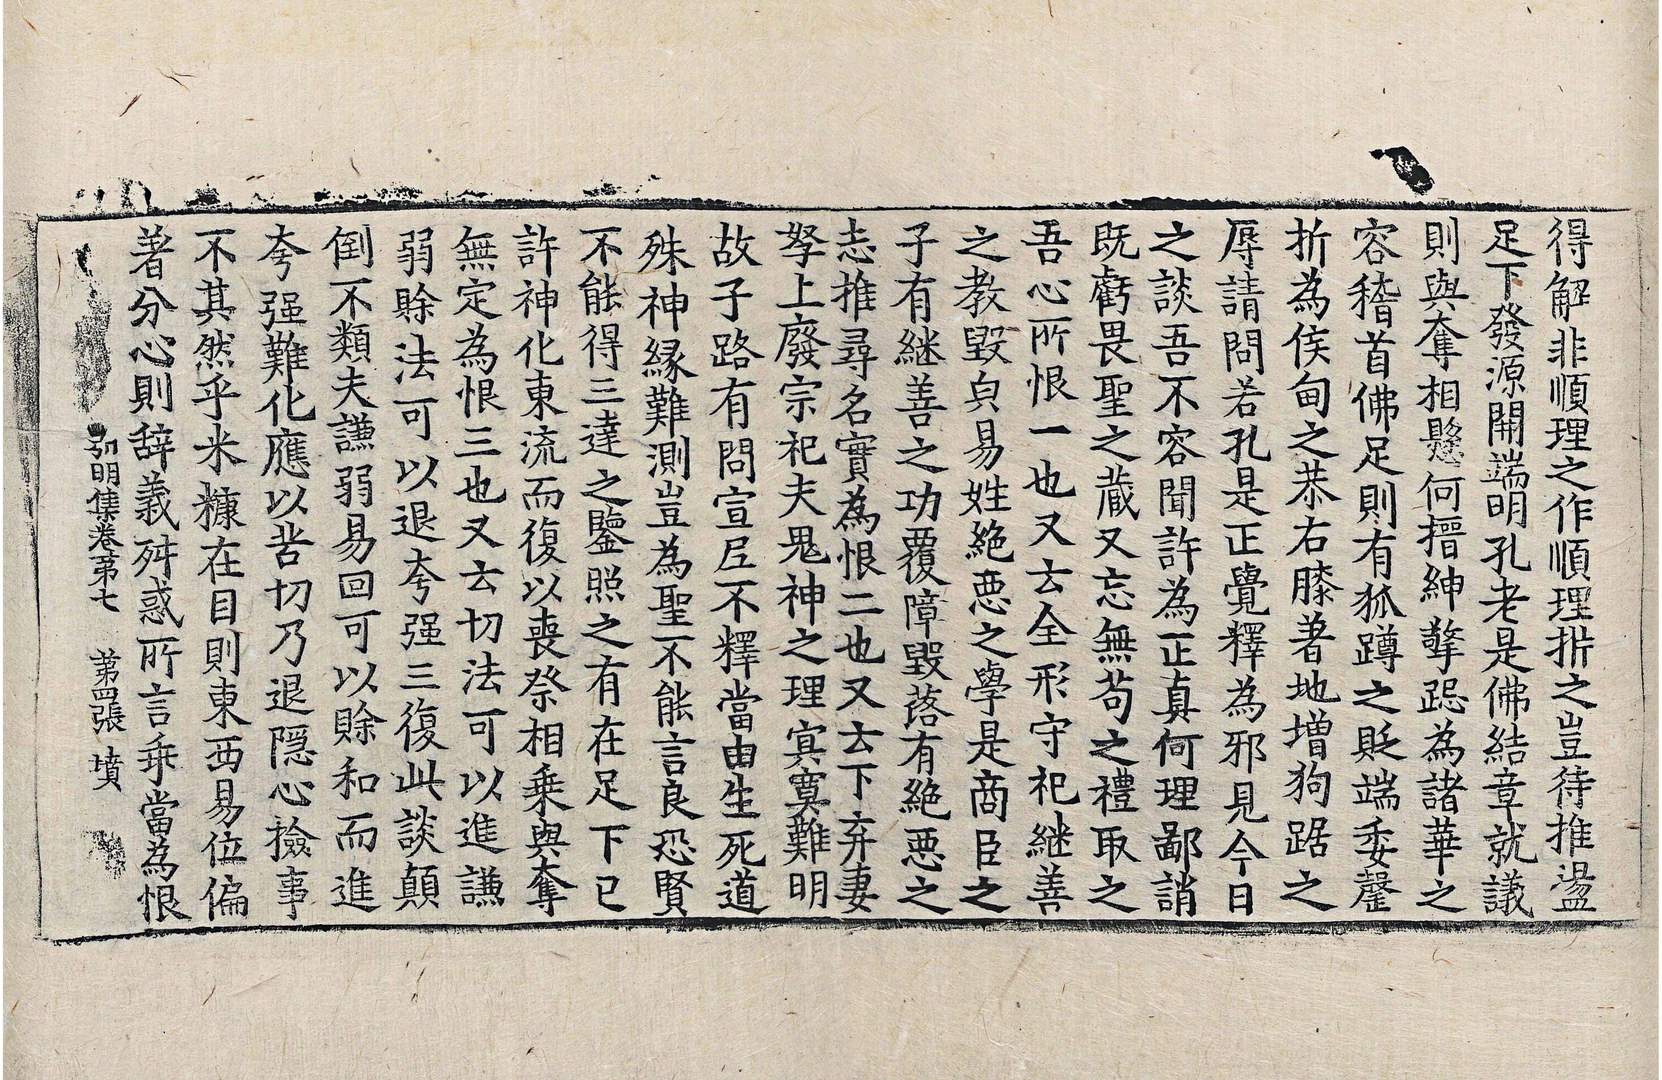 得解非順理之作順理析之豈待推盪
足下發源開端明孔老是佛結章就議
則與奪相懸何搢紳擎跽為諸華之
容稽首佛足則有狐蹲之貶端委罄
折為侯甸之恭右膝著地增狗踞之
辱請問若孔是正覺釋為邪見今日
之談吾不容聞許為正真何理鄙誚
既虧畏聖之蔵又忘無苟之禮取之
吾心所恨一也又云全形守祀継善
之教毀皃易姓絶惡之學是商臣之
子有継善之功覆障毀落有絶惡之
志推尋名實為恨二也又云下弃妻
孥上廢宗祀夫鬼神之理冥寞難明
故子路有問宣尼不釋當由生死道
殊神緣難測豈為聖不能言良恐賢
不能得三達之鑒照之有在足下已
許神化東流而復以喪祭相乗與奪
無定為恨三也又云切法可以進謙
弱賒法可以退夸强三復此談顛
倒不類夫謙弱易回可以賒和而進
夸强難化應以苦切乃退隱心撿事
不其然乎米糠在目則東西易位偏
著分心則辞義舛惑所言乖當為恨
弘明集卷苐七 第四張 墳